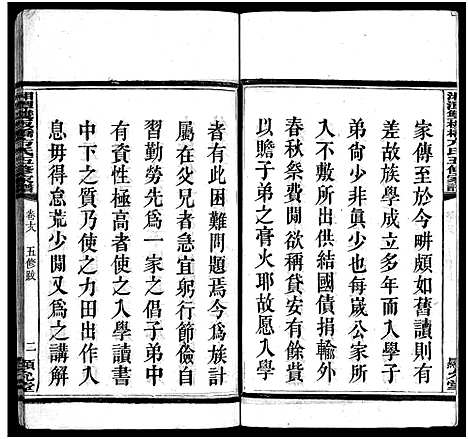 家傳至於今畊頗如舊讀則有
差故族學成立多年而入學子
弟尙少非眞少也每歲公家所
入不敷所出國債捐輸外
春秋祭費開欲稱貸安有餘貲
以贍子弟之膏火耶故愿入學
者有此困難問題焉今為族計
屬在父兄者急宜躬行節儉自
習勤勞先為一家之倡子弟中
有資性極高者使之入學讀書
中下之質乃使之力田出作入
息毋得怠荒少閒又為之講解
五修跋
二